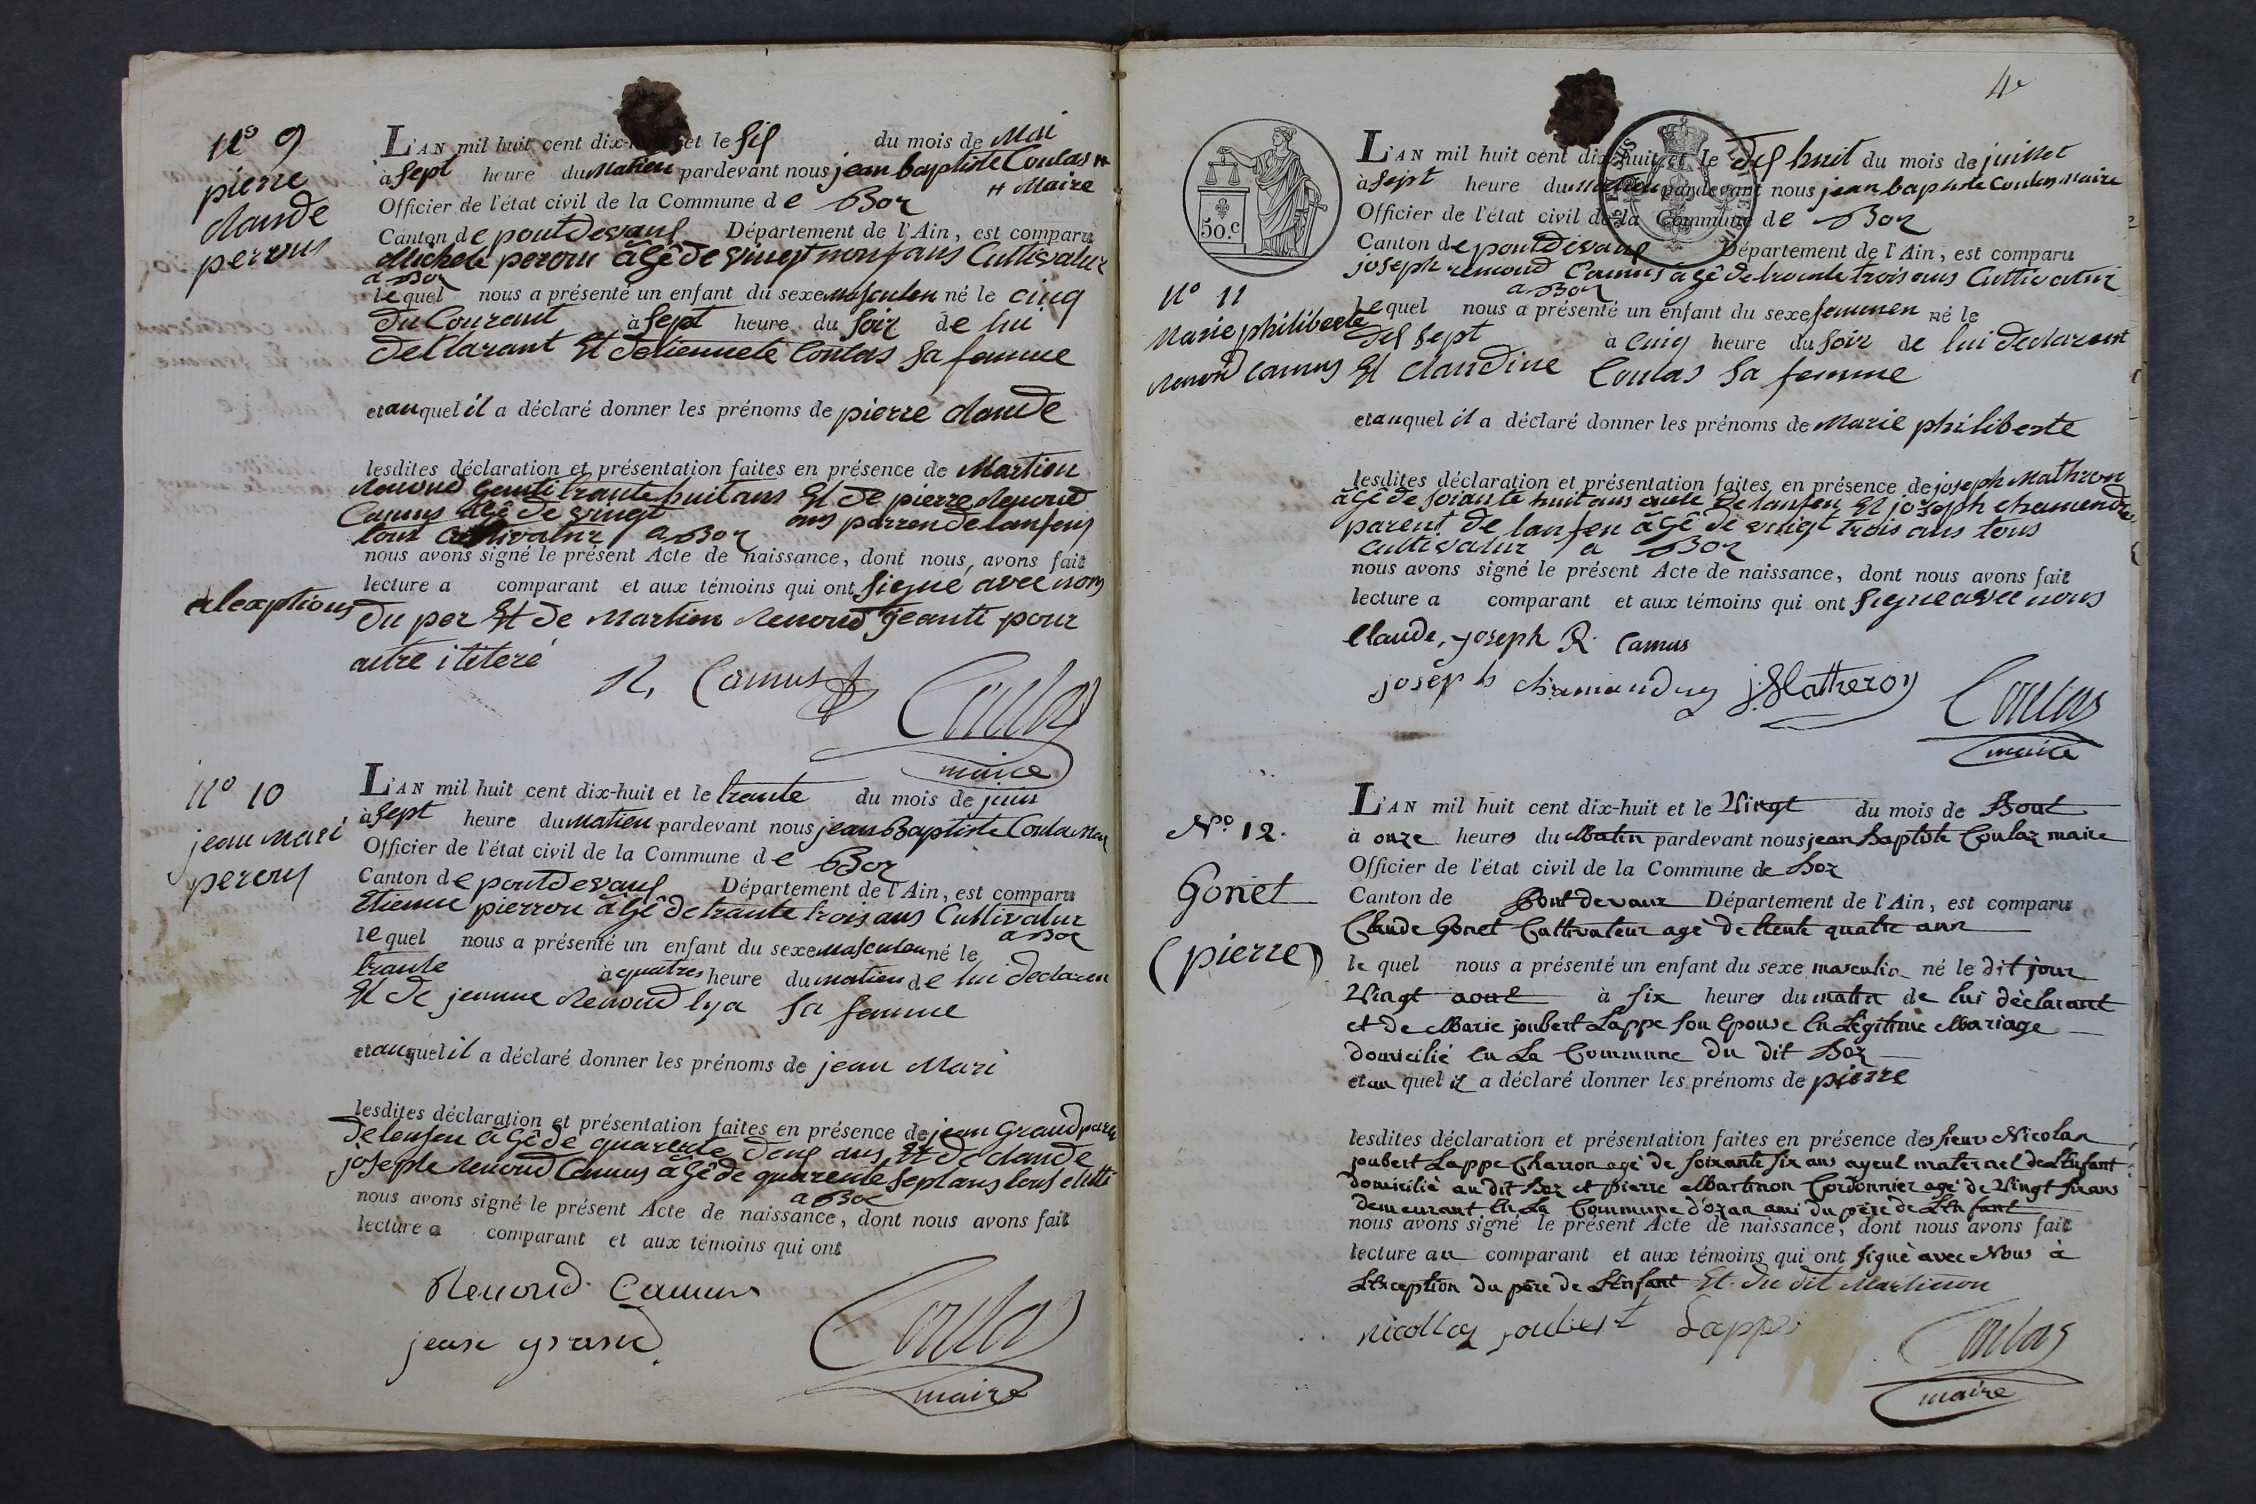 N° 9
pierre
claude
perron
L'AN mil huit cent dix-huit et le six du mois de Mai
à sept heure du matien pardevant nous jean baptiste Coulas #
# Maire
Officier de l'état civil de la Commune de Boz
Canton de pontdevaux Département de l'Ain, est comparu
Michele peron âgé de vingt nonf ans Cultivatur
a Boz
lequel nous a présenté un enfant du sexe masculen né le cinq
du Courant à sept heure du soir de lui
declarant Et detiennete Coulas sa femme
et auquel il a déclaré donner les prénoms de pierre claude
lesdites déclaration et présentation faites en présence de Martien
Renoud Genti trante huit ans Et de pierre Renoud
Camus âgé de vingt ans parren de lanfens
tout Cultivatur a Boz
nous avons signé le présent Acte de naissance, dont nous avons fait
lecture a comparant et aux témoins qui ont signé avec nous
alexptions du per Et de Martien Renoud geanti pour
autre itteré
R, Camus
Coulas
maire
N° 10
jean mari
perron
L'AN mil huit cent dix-huit et le trante du mois de juin
à sept heure du matien pardevant nous jean Baptiste Coula Mair
Officier de l'état civil de la Commune de Boz
Canton de pontdevaux Département de l'Ain, est comparu
Etienne pierron âgé de trante trois ans Cultivatur
a Boz
lequel nous a présenté un enfant du sexe masculen né le
trante à quatres heure du matien de lui declaren
Et de jeanne Renoud lya sa femme
et auquel il a déclaré donner les prénoms de jean Mari
lesdites déclaration et présentation faites en présence de jean Grand paren
de lenfen âgé de quarente deux ans Et de claude
joseph Renoud Camus âgé de quarente sept ans tous cultti
a Boz
nous avons signé le présent Acte de naissance, dont nous avons fait
lecture a comparant et aux témoins qui ont
Renoud Camus
jean grand
Coulas
maire
4e
50.c
N° 11
Marie philiberte
Renoud Camus
L'AN mil huit cent dix-huit et le dix huit du mois de juillet
à sept heure du matien pardevant nous jean baptiste Coulas Maire
Officier de l'état civil de la Commune de Boz
Canton de pontdevaux Département de l'Ain, est comparu
joseph renoud Camus âgé de trounte trois ans Cultivatur
a Boz
lequel nous a présenté un enfant du sexe femenen né le
dix sept à cinq heure du soir de lui declarant
Et claudine Coulas sa femme
et auquel il a déclaré donner les prénoms de Marie philiberte
lesdites déclaration et présentation faites en présence de joseph Mathron
âgé de soixante huit ans de lanfen Et joseph
parent de lanfen âgé de vingt trois ans tous
cultivatur a Boz
nous avons signé le présent Acte de naissance, dont nous avons fait
lecture a comparant et aux témoins qui ont signe avec nous
Claude, joseph R. Camus
joseph chamanduy j. Matheron
Coulas
maire
N.° 12.
Gonet
(pierre)
L'AN mil huit cent dix-huit et le Vingt du mois de Aout
à onze heures du Matin pardevant nous jean Baptiste Coulaz maire
Officier de l'état civil de la Commune de Boz
Canton de Pont devaux Département de l'Ain, est comparu
Claude Gonet Cultivateur agé de trente quatre ans
le quel nous a présenté un enfant du sexe masculin né le dit jour
Vingt aout à six heures du matin de lui déclarant
et de Marie joubert Lappe son Epouse En Légitime Mariage
domicilié En La Commune du dit Boz
et au quel il a déclaré donner les prénoms de pierre
lesdites déclaration et présentation faites en présence des sieurs Nicolas
joubert Lappe Charron agé de soixante six ans ayeul maternel de L'Enfant
domicilié au dit Boz et Pierre Martinon Cordonnier agé de Vingt six ans
demeurant En La Commune d'ozan ami du père de L'Enfant
nous avons signé le présent Acte de naissance, dont nous avons fait
lecture au comparant et aux témoins qui ont signé avec Nous à
L'Exception du père de L'Enfant Et du dit Martinon
Nicollas joubert Lappe
Coulas
maire